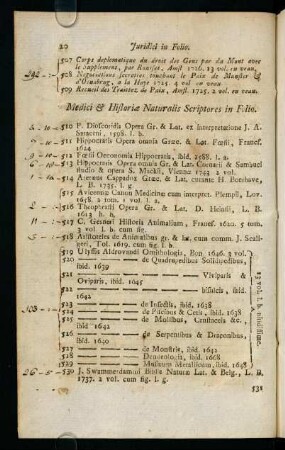 20 Juridici in Folio.
507 Corps deplomatique du droit des Gens par du Mont avec
le Supplement, par Rousset, Amst 1726. 13 vol. en veau.
292 - - 508 Negociations secretes touchant la Paix de Munster
d'Osnabrug, a la Haye 1725 4 vol en veau
509 Recueil des Traitez de Paix, Amst. 1725. 2 vol. en veau.
Medici & Historiæ Naturalis Scriptores in Folio.
510 P. Dioscoridis Opera Gr. & Lat. ex interpretatione J. A.
Saraceni, 1598. l. b.
511 Hippocratis Opera omnia Græc. & Lat. Fœsii, Francf.
1624
512 Fœsii Oeconomia Hippocratis, ibid. 1588. l. b.
513 Hippocratis Opera omnia Gr. & Lat. Cornarii & Sambuci
studio & opera S. Mackii, Viennæ 1743 2 vol.
514 Aretæus Cappadox Græc. & Lat. curante H. Boerhave,
L. B. 1735. l. g.
515 Avicennæ Canon Medicinæ cum interpret. Plempii, Lov.
1658. 2 tom. 1 vol. l. b.
516 Theophrasti Opera Gr. & Lat. D. Heinsii, L. B.
1613 h. b.
517 C. Gesneri Historia Animalium, Francf. 1620. 5 tom.
3 vol. l. b. cum fig.
518 Aristoteles de Animalibus gr. & lat. cum comm. J. Scali-
geri, Tol. 1619. cum fig. l. b.
519 Ulyssis Aldrovandi Ornithologia, Bon. 1646. 3 vol.
520 — — — de Quadrupedibus Solidipedibus,
ibid. 1639
521 — — — Viviparis &
Oviparis, ibid. 1645
522 — — — bisulcis, ibid.
1642
523 — — — de Insectis, ibid. 1638
103 - - 524 — — — de Piscibus & Cetis, ibid. 1638
525 — — — de Mollibus, Crustaceis &c.
ibid 1642
526 — — — de Serpentibus & Draconibus,
ibid. 1640
527 — — — de Monstris, ibid. 1642
528 — — — Dendrologia, ibid. 1668
529 — — — Musæum Metallicum, ibid. 1648
13 vol. l. b. nitidissime.
26 - 5 - 530 J. Swammerdammii Biblia Naturæ Lat. & Belg., L. B.
1737. 2 vol. cum fig. l. g.
531